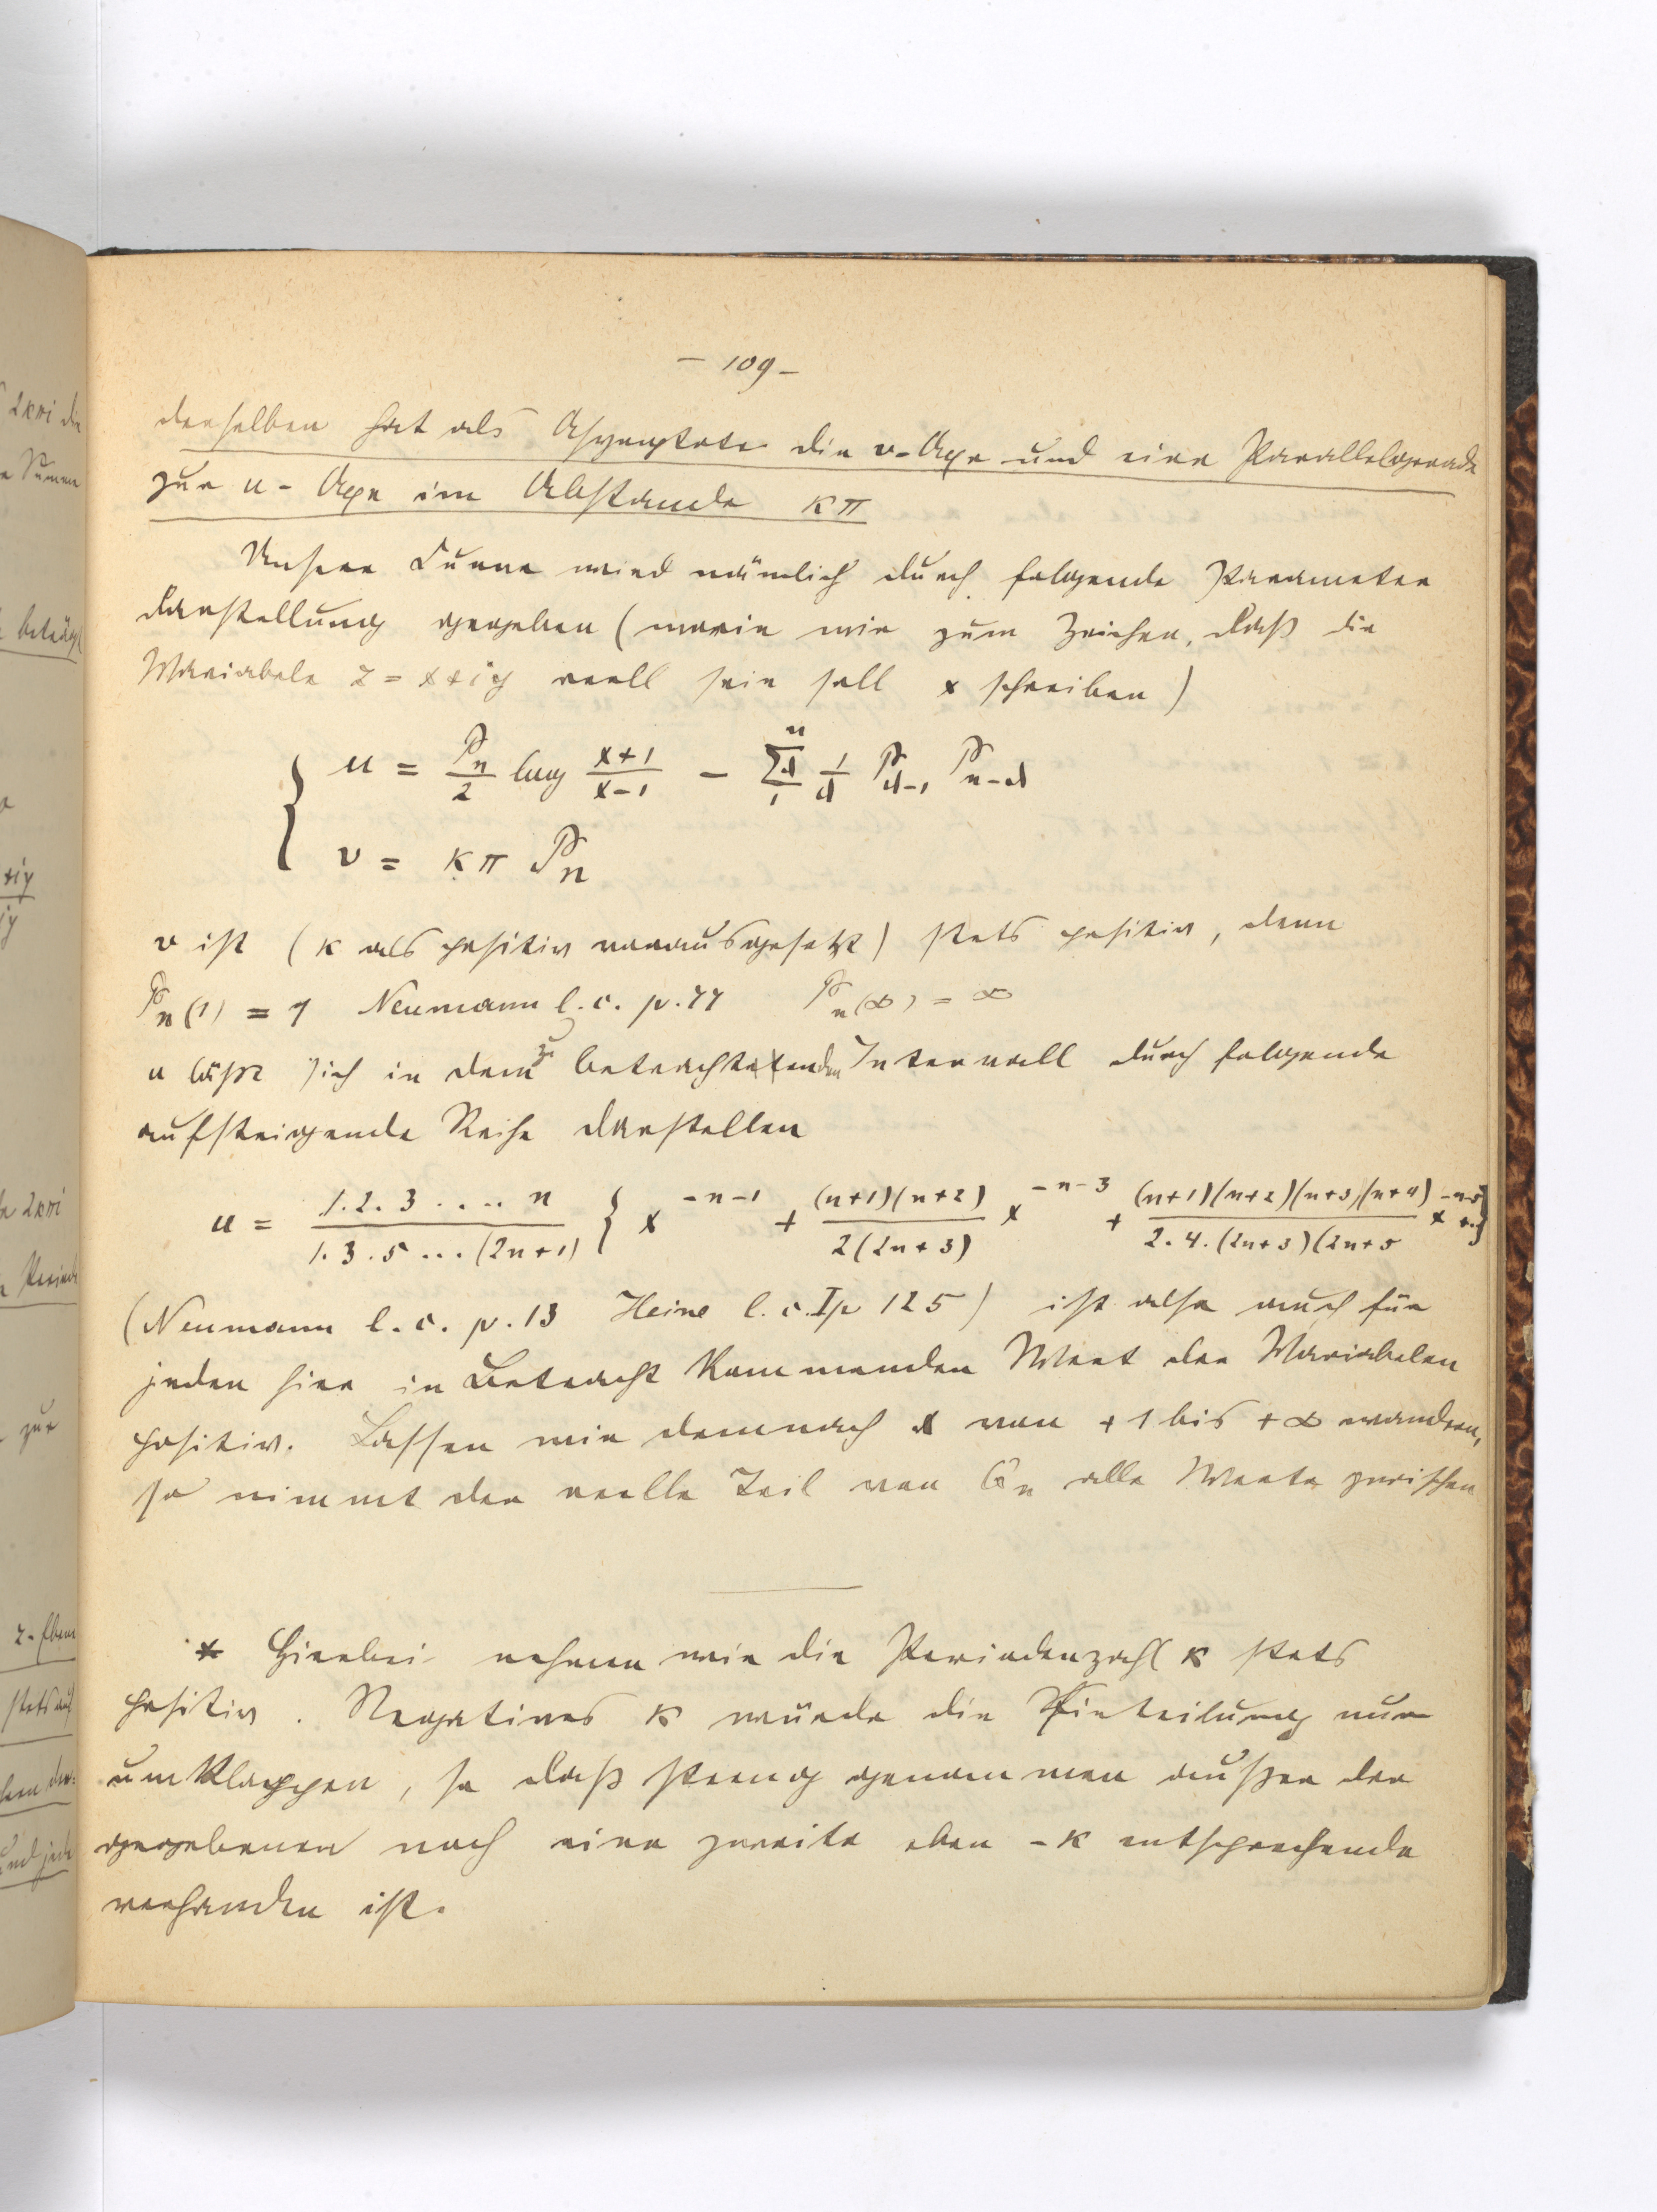 – 109 –
derselben hat als Asymptote die v-Axe und eine Parallelgerade
zur u-Axe im Abstande κπ
Unsere Curve wird nämlich durch folgende Parameter
darstellung gegeben (worin wir zum Zeichen, daß die
Variabele z = x+iy reell sein soll x schreiben)
u = P_n/2 log (x+1)/(x-1) – Σ_1^n 1/d P_{d-1} P_{n-d}
v = κπ P_n
v ist (κ als positiv vorausgesetzt) stets positiv, denn
P_n(1) = 1 Neumann l.c. p.77 P_n(∞) = ∞
u läßt sich in dem zu betrachtenden Intervall durch folgende
aufsteigende Reihe darstellen
u = 1.2.3....n / 1.3.5...(2n+1) { x^{-n-1} + (n+1)(n+2)/2(2n+3) x^{-n-3} + (n+1)(n+2)(n+3)(n+4)/2.4.(2n+3)(2n+5 x^{-n-5} +..}
(Neumann l.c. p.13 Heine l.c. I p 125) ist also auch für
jeden hier in Betracht kommenden Wert der Variabelen
positiv. Lassen wir demnach x von +1 bis +∞ wandern,
so nimmt der reelle Teil von G_n alle Werte zwischen
* Hierbei nehmen wir die Periodenzahl κ stets
positiv. Negatives κ würde die Einteilung nur
umklappen, so daß streng genommen außer der
gegebenen noch eine zweite eben -κ entsprechende
vorhanden ist.